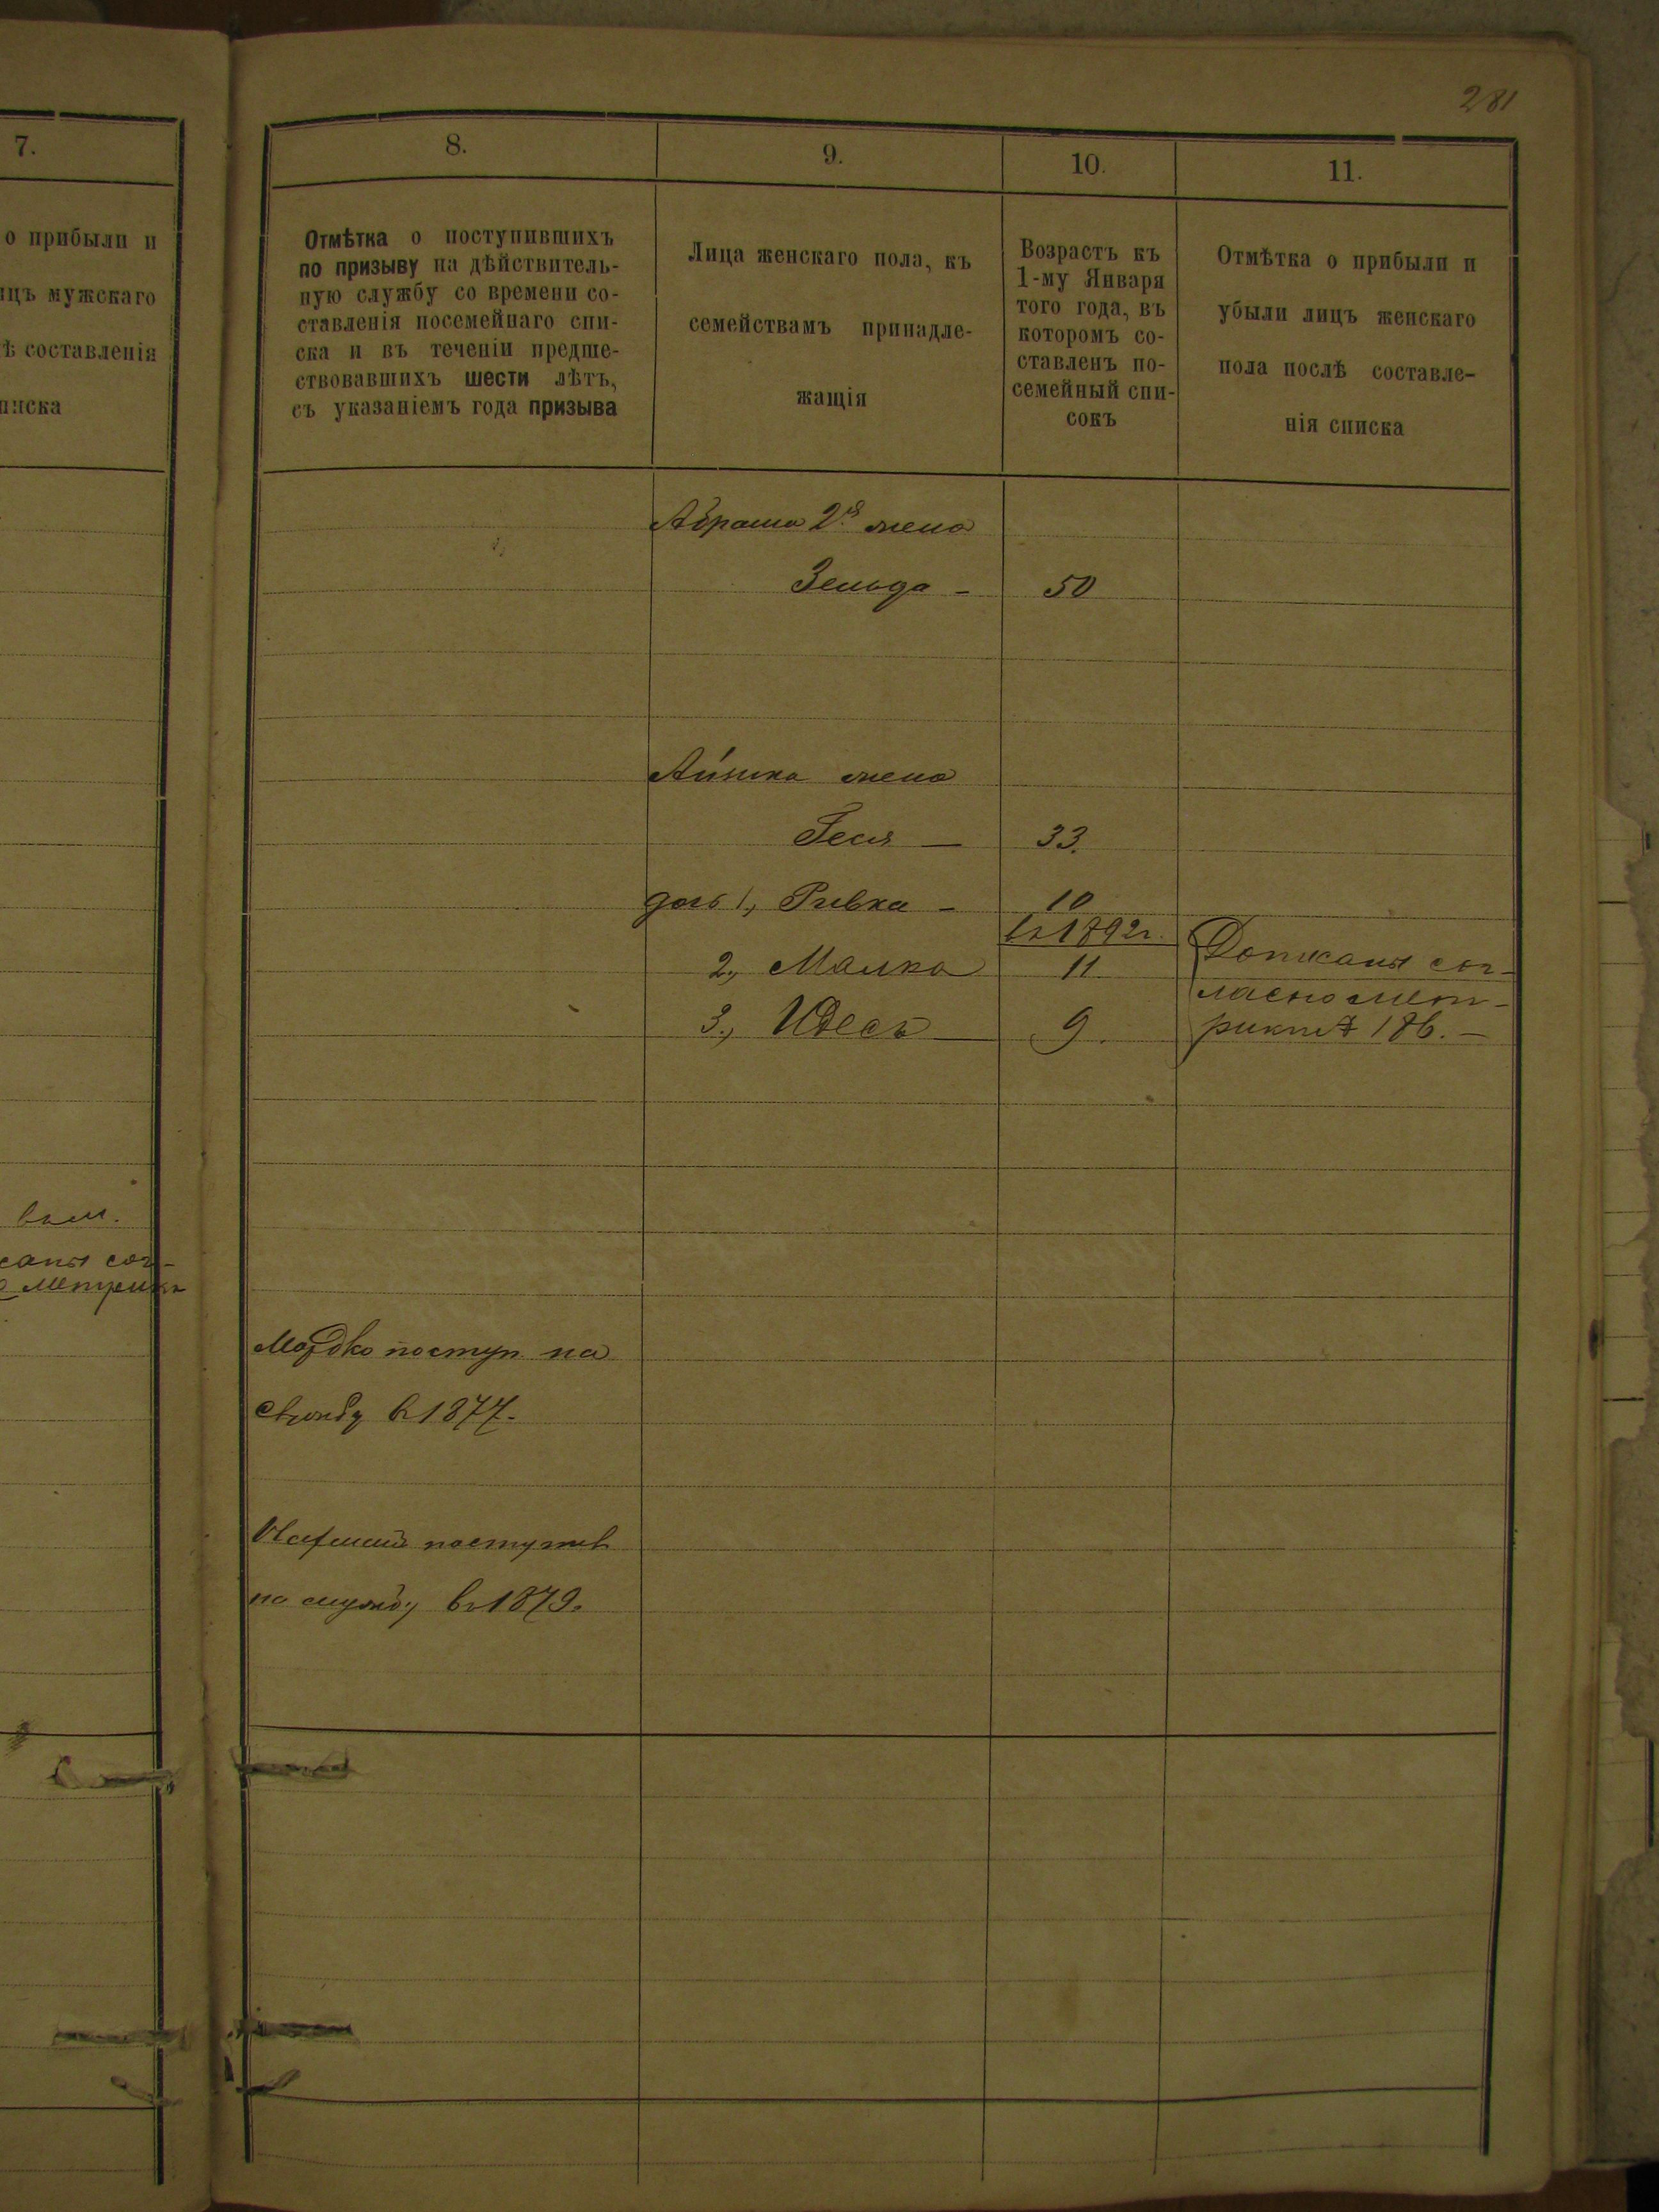 281
7.
о прибыли и
ицъ мужскаго
ѣ составленія
писка
8.
9.
10.
11.
Отмѣтка о поступившихъ
по призыву на дѣйствитель-
ную службу со времени со-
ставленія посемейнаго спи-
ска и въ теченіи предше-
ствовавшихъ шести лѣтъ,
съ указаніемъ года призыва
Лица женскаго пола, къ
семействамъ принадле-
жащія
Возрастъ къ
1-му Января
того года, въ
которомъ со-
ставленъ по-
семейный спи-
сокъ
Отмѣтка о прибыли и
убыли лицъ женскаго
пола послѣ составле-
нія списка
Абрама 2я жена
Зельда - 50
жена
Геся — 33.
дочь 1, Ривка - 10
въ 1892г.
2, Малка 11
3, Идесъ — 9.
Дописаны сог-
ласно мет-
рикѣ 186. —
саны сог-
Метрики
Мордко поступ на
службу въ 1877.
поступив
на службу въ 1879.